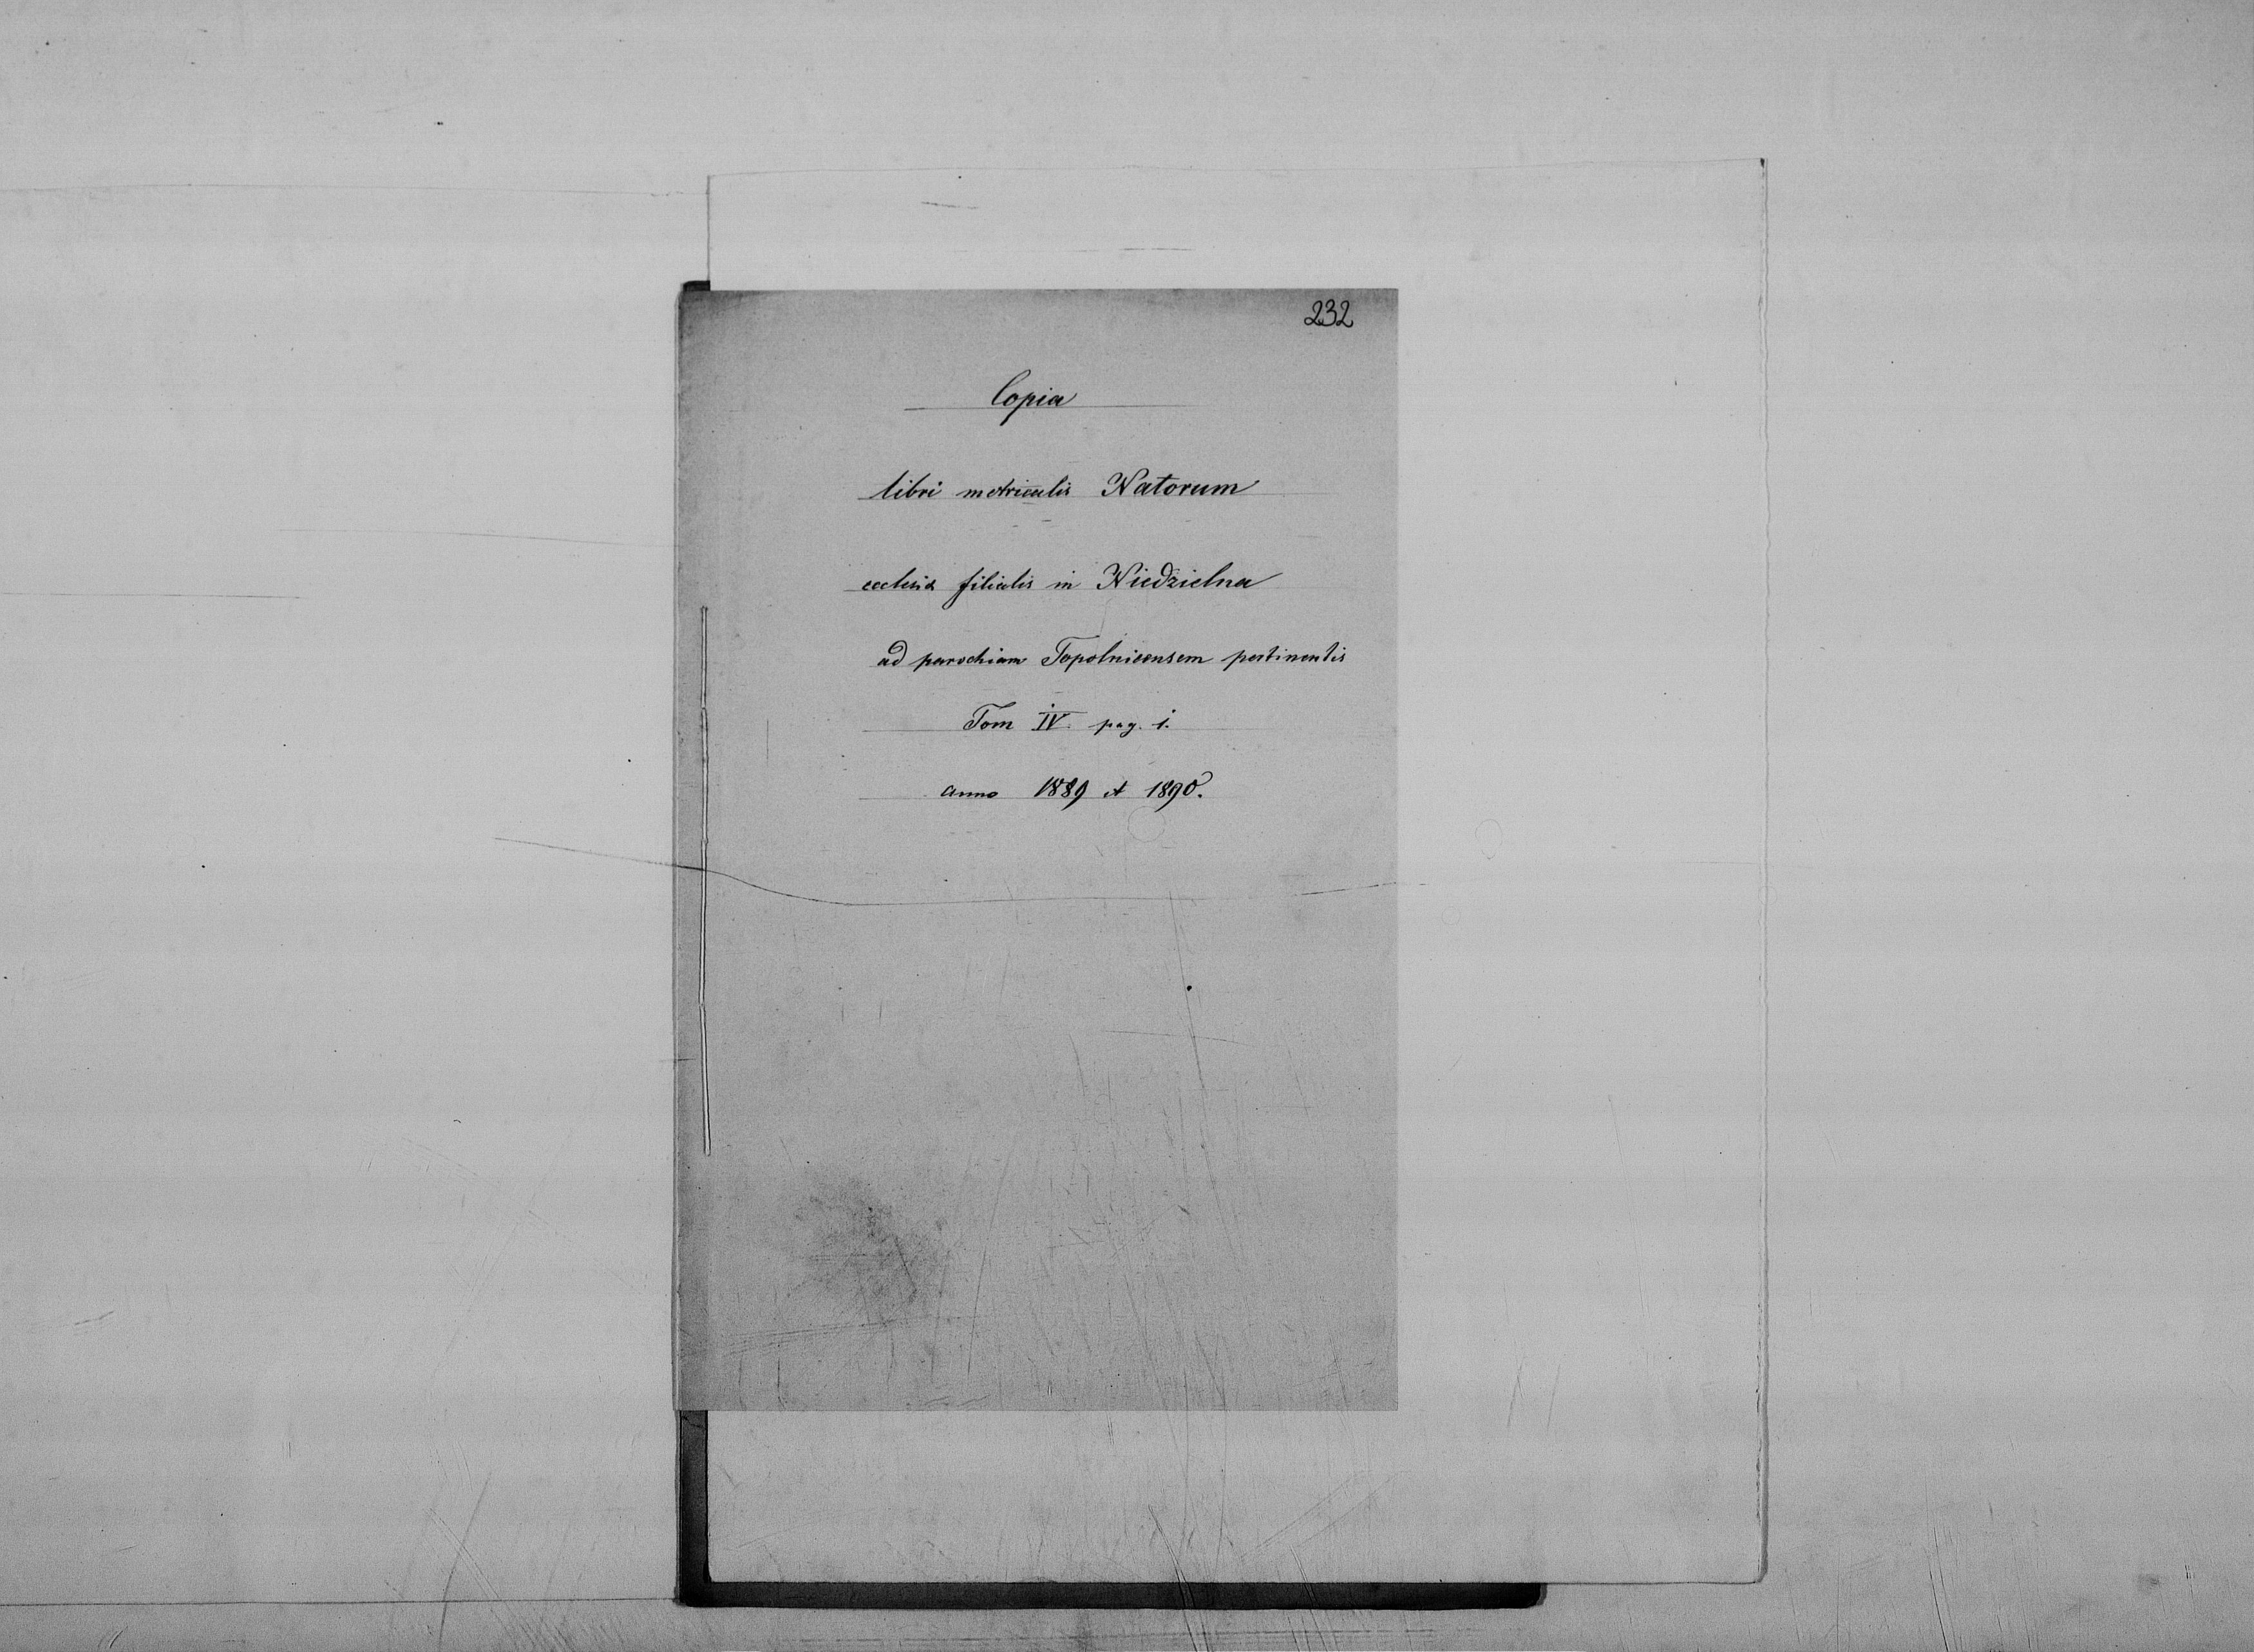 232
Copia
libri metricalis Natorum
ecclesiæ filialis in Niedzielna
ad parochiam Topolnicensem pertinentis
Tom IV. pag. 1.
anno 1889 et 1890.